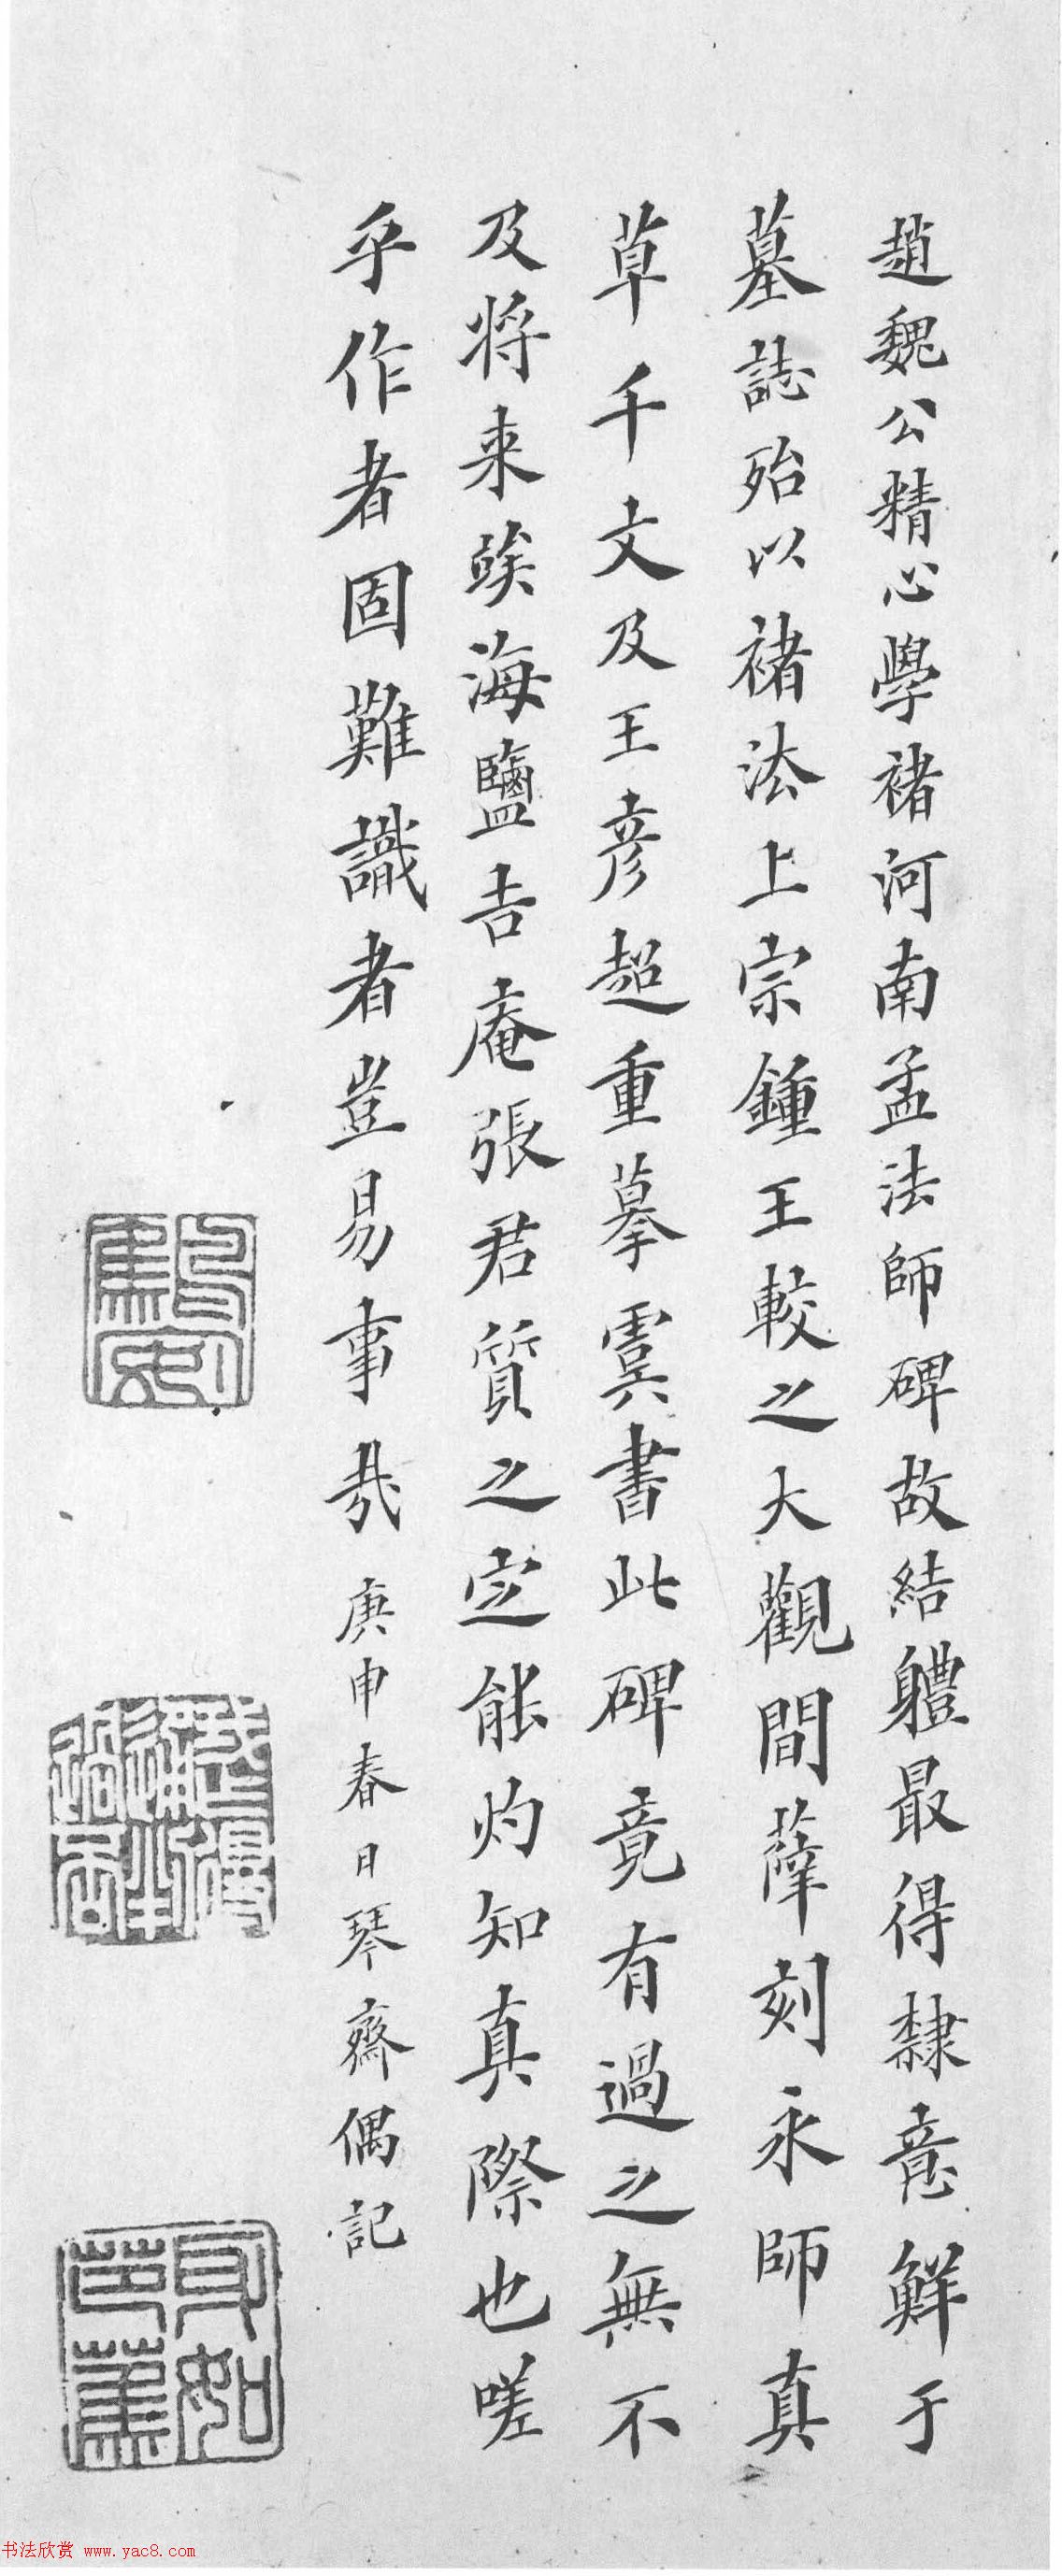 趙魏公精心學褚河南孟法師碑故結軆最得隸意鮮于
墓誌殆以褚法上宗鍾王較之大觀間薛刻永師真
草千文及王彦超重摹虞書此碑竟有過之無不
及将来竢海鹽吉庵張君質之定能灼知真際也嗟
乎作者固難識者豈易事哉庚申春日琴齋偶記
身如
芭蕉
书法欣赏 www.yac8.com